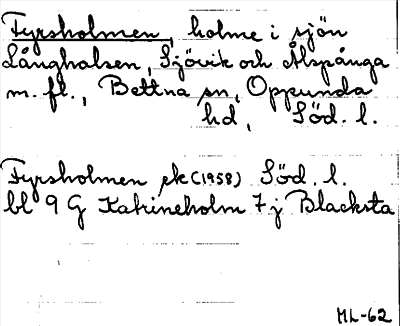 Fyrsholmen, holme i sjön
Långhalsen, Sjövik och Ålspånga
m. fl., Bettna sn, Oppunda
hd, Söd. l.
Fyrsholmen ek (1958) Söd. l.
bl 9 G Katrineholm 7 j Blacksta
ML-62